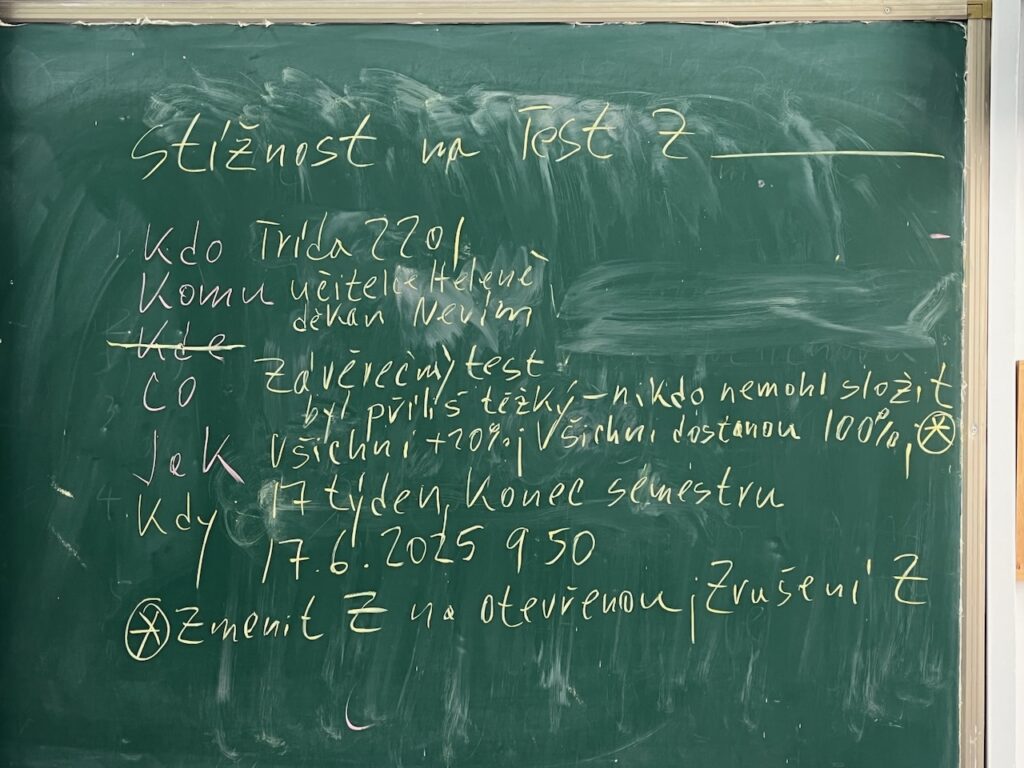 Stížnost na Test Z
Kdo Třída 2201
Komu učitelce Heleně
děkan Nevím
Kde
Co Závěrečný test
byl příliš těžký – nikdo nemohl složit
Jak Všichni +20%; Všichni dostanou 100%;
Kdy 17 týden, konec semestru
17.6.2025 9:50
Změnit Z na otevřenou; Zrušení Z